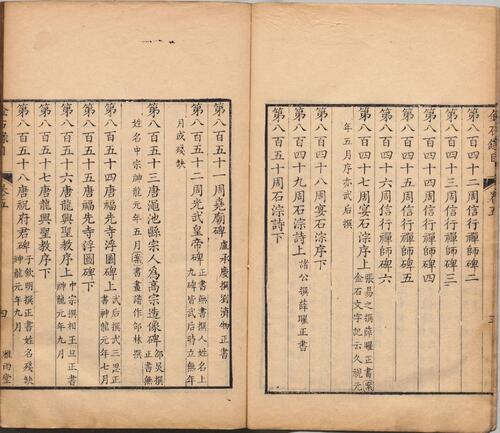 第八百四十二周信行禪師碑二
第八百四十三周信行禪師碑三
第八百四十四周信行禪師碑四
第八百四十五周信行禪師碑五
第八百四十六周信行禪師碑六
第八百四十七周宴石淙序上 張易之撰薛曜正書案金石文字記云久視元
年五月序亦武后撰
第八百四十八周宴石淙序下
第八百四十九周石淙詩上 諸公撰薛曜正書
第八百五十周石淙詩下
第八百五十一周堯廟碑 盧承慶撰劉濟物正書
第八百五十二周光武皇帝碑 正書無書撰人姓名上九碑皆武后時立無年
月或殘缺
第八百五十三唐澠池縣宗人為高宗造像碑 邵炅撰正書無
姓名中宗神龍元年五月案書畫譜作邰林撰
第八百五十四唐福先寺浮圖碑上 武后撰武三思正書神龍元年七月
第八百五十五唐福先寺浮圖碑下
第八百五十六唐龍興聖教序上 中宗撰相王旦正書神龍元年九月
第八百五十七唐龍興聖教序下
第八百五十八唐祝府君碑 子欽明撰正書姓名殘缺神龍元年九月
金石錄目 卷五 四 雅雨堂